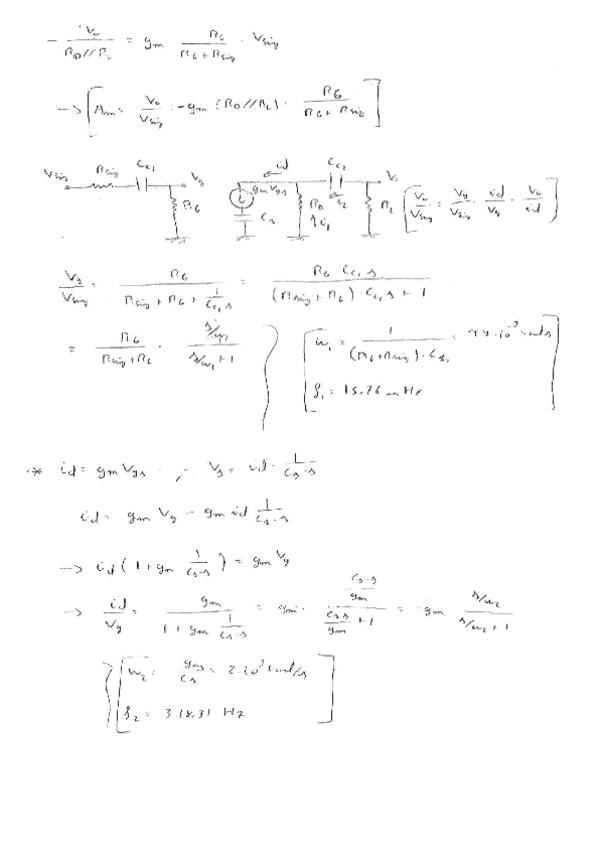 - Vo / (RD//RL) = gm RG / (RG + Rsig) · Vsig
-> [ Am = Vo / Vsig = -gm (RD//RL) · RG / (RG + Rsig) ]
Vsig Rsig Cc1 Vg RG gm Vgs Cs id RD i1 Cc2 i2 Vo RL [ Vo / Vsig = Vg / Vsig · id / Vg · Vo / id ]
Vg / Vsig = RG / (Rsig + RG + 1 / (Cc1 s)) = RG Cc1 s / ((Rsig + RG) · Cc1 s + 1)
= RG / (Rsig + RG) · (s/w1) / (s/w1 + 1) } [ w1 = 1 / ((RG + Rsig) · Cc1) = 99 · 10^-3 rad/s
f1 = 15.76 m Hz ]
* id = gm Vgs , Vs = id · 1 / (Cs · s)
id = gm Vg - gm id 1 / (Cs · s)
-> id ( 1 + gm 1 / (Cs · s) ) = gm Vg
-> id / Vg = gm / (1 + gm 1 / (Cs · s)) = gm · (Cs · s / gm) / (Cs s / gm + 1) = gm (s/w2) / (s/w2 + 1)
} [ w2 = gm / Cs = 2 · 10^3 rad/s
f2 = 318.31 Hz ]